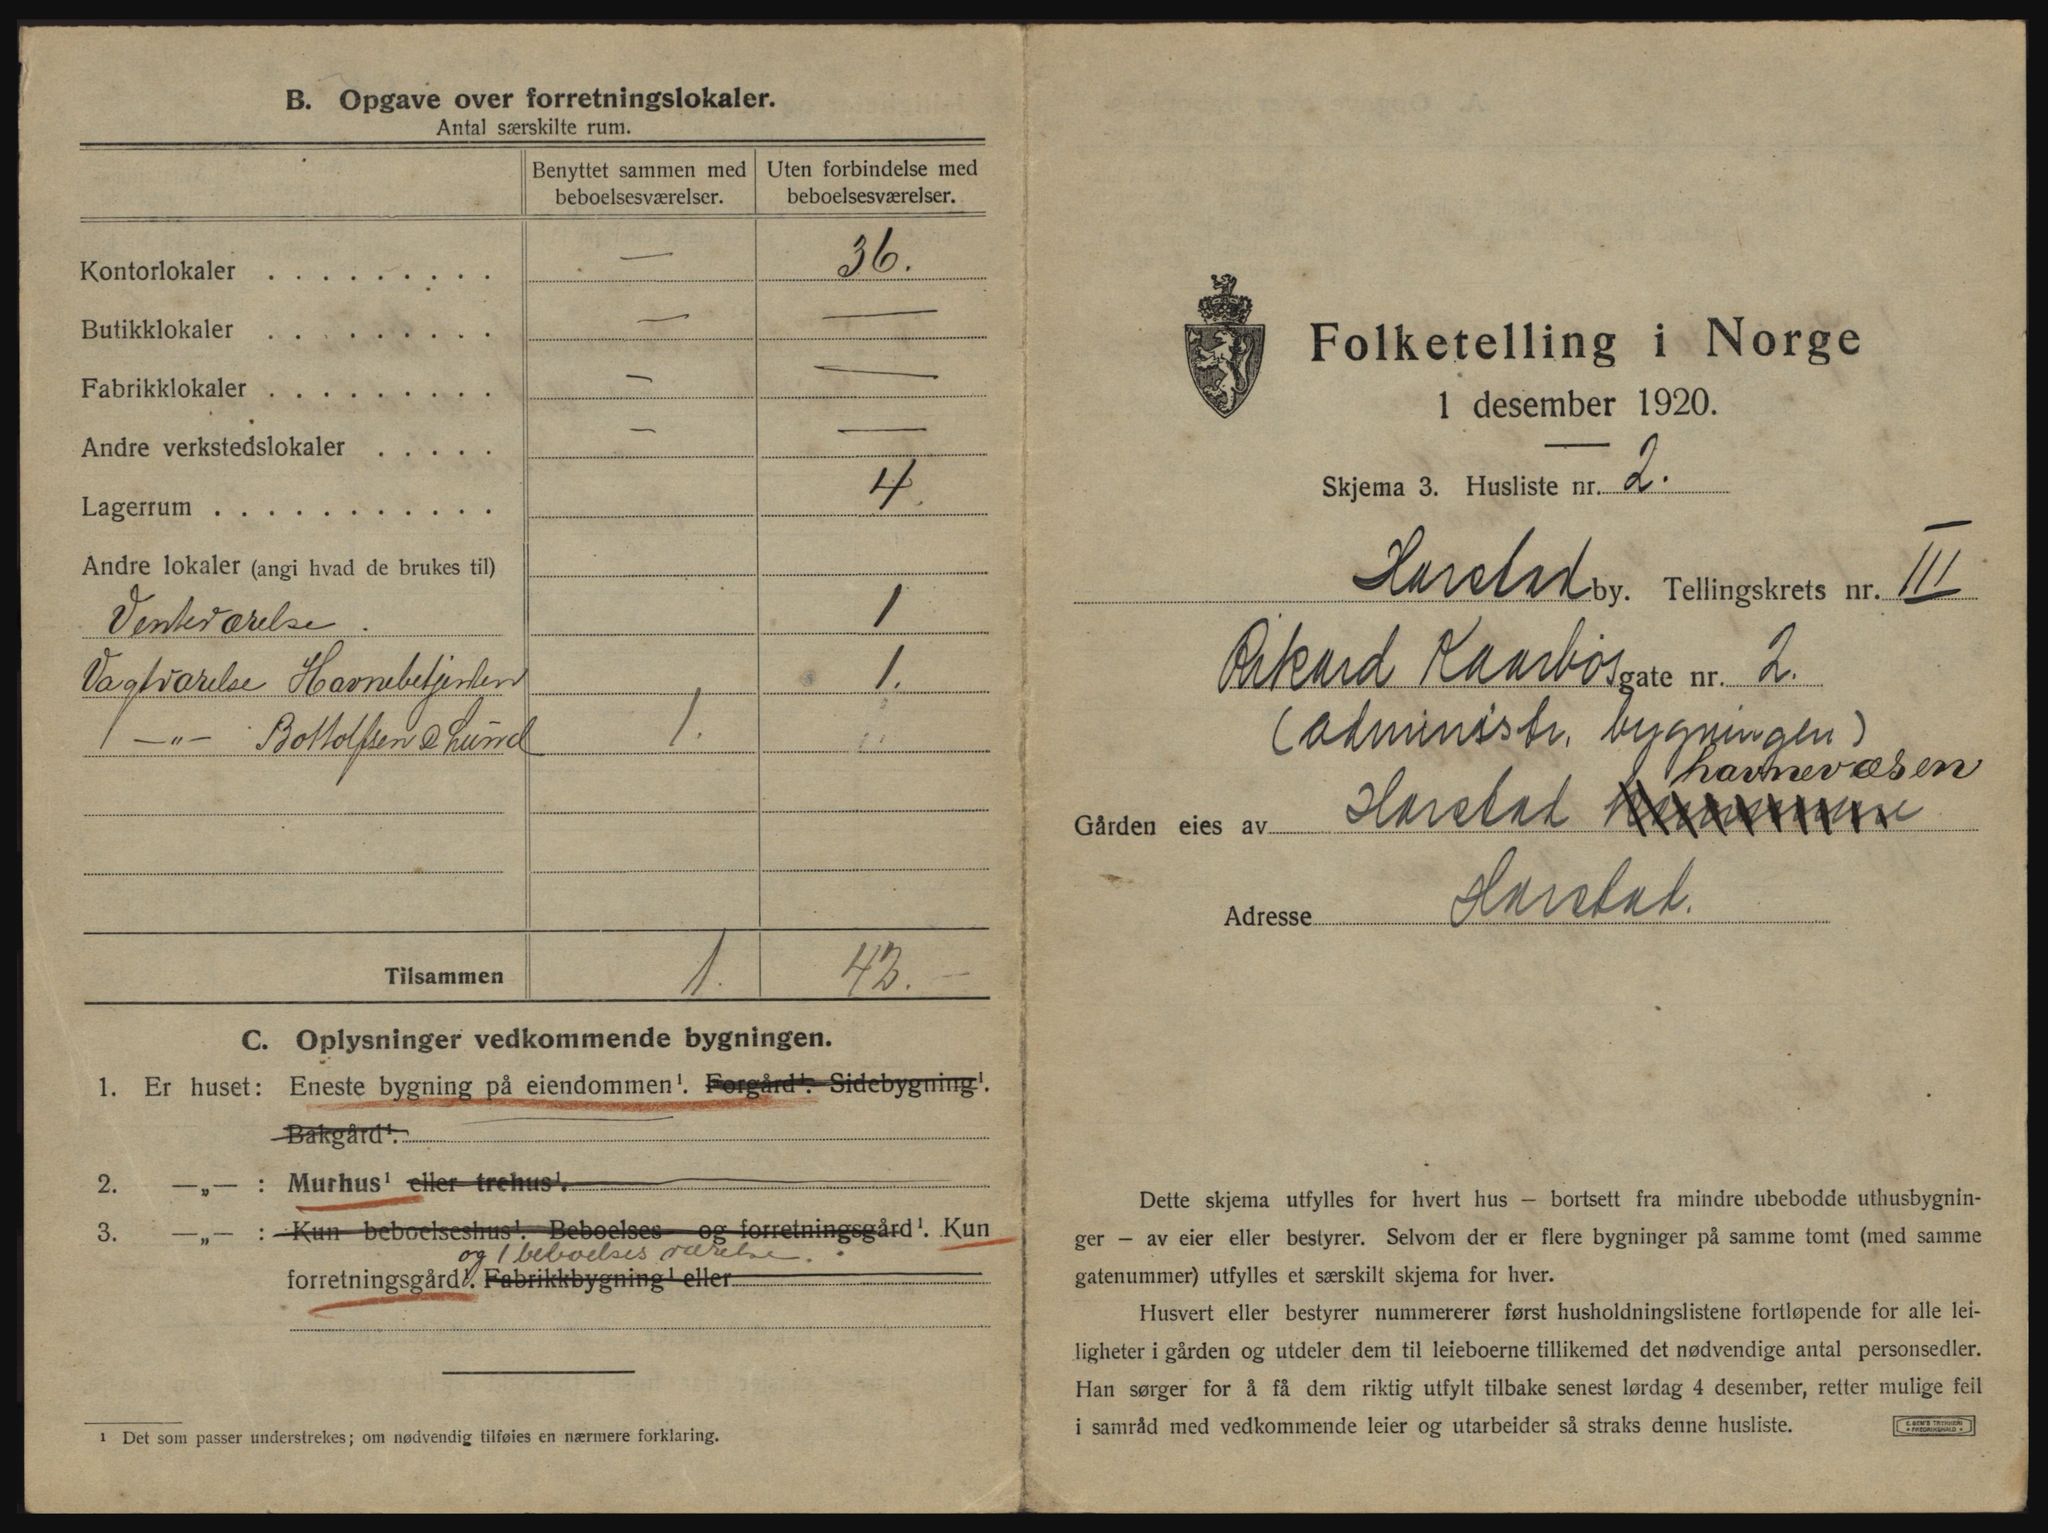 B. Opgave over forretningslokaler.
Antal særskilte rum.
Benyttet sammen med beboelsesværelser. Uten forbindelse med beboelsesværelser.
Kontorlokaler . . . . . . . . . — 36.
Butikklokaler . . . . . . . . . — —
Fabrikklokaler . . . . . . . . . — —
Andre verkstedslokaler . . . . . — —
Lagerrum . . . . . . . . . . . 4.
Andre lokaler (angi hvad de brukes til)
Venteværelse . 1
Vagtværelse Havnebetjenten 1.
—„— Bottolfsen & Lund 1.
Tilsammen 1. 42. —
C. Oplysninger vedkommende bygningen.
1. Er huset: Eneste bygning på eiendommen¹. Forgård¹. Sidebygning¹.
Bakgård¹.
2. —„— : Murhus¹ eller trehus¹.
3. —„— : Kun beboelseshus¹. Beboelses- og forretningsgård¹. Kun
og 1 beboelsesværelse.
forretningsgård¹. Fabrikkbygning¹ eller
¹ Det som passer understrekes; om nødvendig tilføies en nærmere forklaring.
Folketelling i Norge
1 desember 1920.
Skjema 3. Husliste nr. 2.
Harstad by. Tellingskrets nr. III
Rikard Kaarbøs gate nr. 2.
(administr. bygningen)
havnevæsen
Gården eies av Harstad kommune
Adresse Harstad.
Dette skjema utfylles for hvert hus — bortsett fra mindre ubebodde uthusbygnin-
ger — av eier eller bestyrer. Selvom der er flere bygninger på samme tomt (med samme
gatenummer) utfylles et særskilt skjema for hver.
Husvert eller bestyrer nummererer først husholdningslistene fortløpende for alle lei-
ligheter i gården og utdeler dem til leieboerne tillikemed det nødvendige antal personsedler.
Han sørger for å få dem riktig utfylt tilbake senest lørdag 4 desember, retter mulige feil
i samråd med vedkommende leier og utarbeider så straks denne husliste.
E. SEM'S TRYKKERI
FREDRIKSHALD